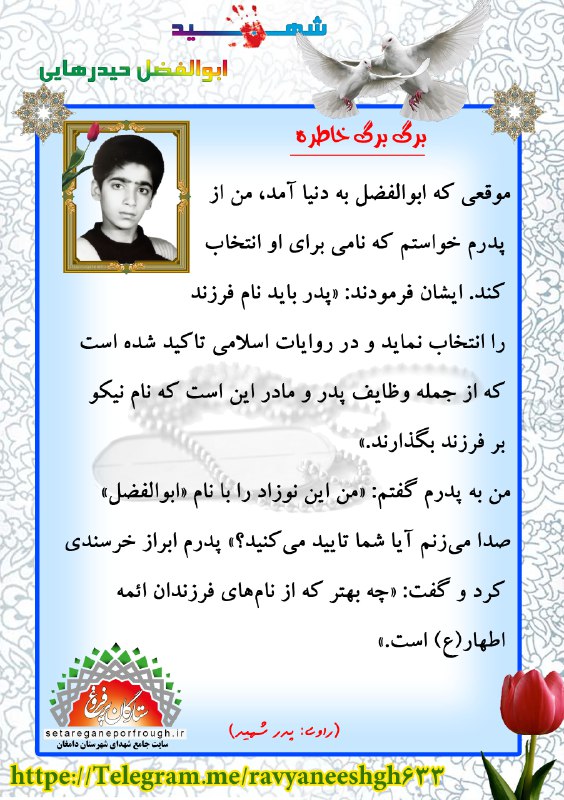 شهید
ابوالفضل حیدرهایی
برگ برگ خاطره
موقعی که ابوالفضل به دنیا آمد، من از
پدرم خواستم که نامی برای او انتخاب
کند. ایشان فرمودند: «پدر باید نام فرزند
را انتخاب نماید و در روایات اسلامی تاکید شده است
که از جمله وظایف پدر و مادر این است که نام نیکو
بر فرزند بگذارند.»
من به پدرم گفتم: «من این نوزاد را با نام «ابوالفضل»
صدا می‌زنم آیا شما تایید می‌کنید؟» پدرم ابراز خرسندی
کرد و گفت: «چه بهتر که از نام‌های فرزندان ائمه
اطهار(ع) است.»
(راوی: پدر شهید)
ستارگان پرفروغ
setareganeporfrough.ir
سایت جامع شهدای شهرستان دامغان
https://Telegram.me/ravyaneeshgh۶۳۳